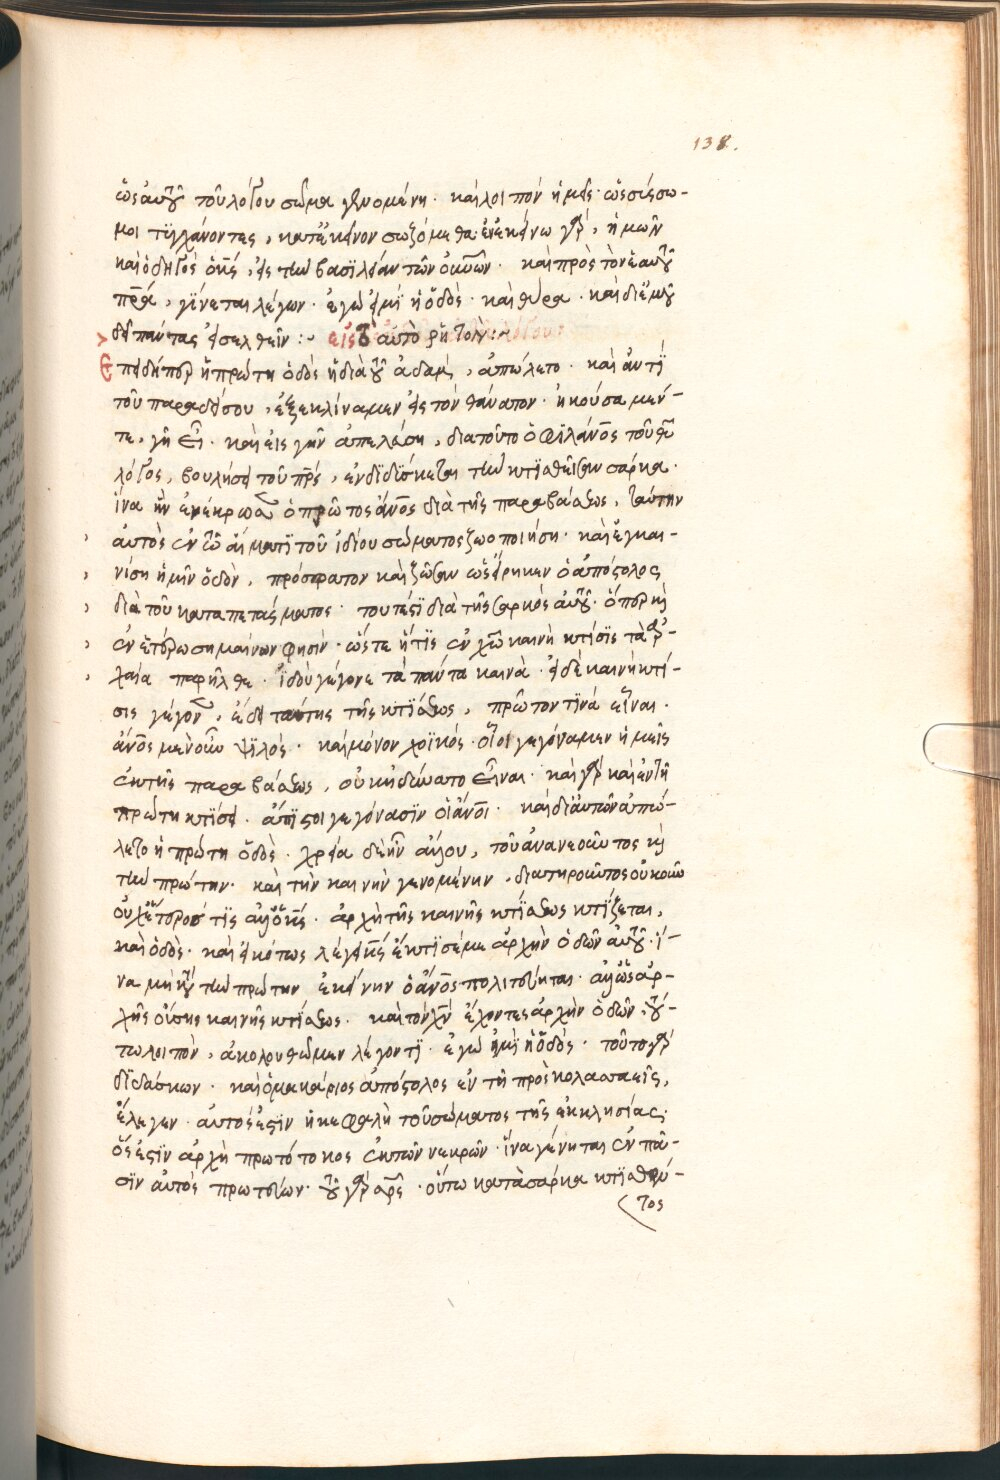 138.
ὡς αὐτοῦ τοῦ λόγου σῶμα γενομένη· καὶ λοιπόν ἡμεῖς· ὡς σύσσω-
μοι τυγχάνοντες, κατ' ἐκεῖνον σωζόμεθα· ἐν ἐκείνω γὰρ, ἡμῶν
καὶ ὁδηγὸς ὁ κς, εἰς τὴν βασιλείαν τῶν οὐνῶν· καὶ πρὸς τὸν ἑαυτοῦ
πρα, γίνεται λέγων· ἐγώ εἰμι ἡ ὁδὸς· καὶ θύρα· καὶ δι' ἐμοῦ
δεῖ πάντας εἰσελθεῖν :~ εἰς τὸ αὐτὸ ῥητόν :~
Ἐπειδήπερ ἡ πρώτη ὁδὸς ἡ διὰ τοῦ ἀδαμ, ἀπώλετο· καὶ ἀντὶ
τοῦ παραδείσου, ἐξεκλίναμεν εἰς τὸν θάνατον· ἠκούσαμέν-
τε, γῆ εἶ· καὶ εἰς γῆν ἀπελεύση, διατοῦτο ὁ φιλάνος τοῦ θυ
λόγος, βουλήσει τοῦ πρς, ἐνδιδύσκεται τὴν κτισθεῖσαν σάρκα·
ἵνα ἣν ἐνέκρωσεν ὁ πρῶτος ἄνος διὰ τῆς παραβάσεως, ταύτην
αὐτὸς ἐν τῶ αἵματι τοῦ ἰδίου σώματος ζωοποιήση· καὶ ἐγκαι-
νίση ἡμῖν ὁδὸν, πρόσφατον καὶ ζῶσαν ὡς εἴρηκεν ὁ ἀπόστολος
διὰ τοῦ καταπετάσματος· τουτέστι διὰ τῆς σαρκὸς αὐτοῦ· ὅπερ καὶ
ἐν ἑτέρω σημαίνων φησὶν· ὥστε ἤ τις ἐν χῶ καινὴ κτίσις τὰ ἀρ-
χαῖα παρῆλθε· ἰδοὺ γέγονε τὰ πάντα καινὰ· εἰ δὲ καινὴ κτί-
σις γέγονεν, ἔδει ταύτης τῆς κτίσεως, πρῶτον τινά εἶναι·
ἄνος μὲν οὖν ψιλός· καὶ μόνον χοϊκός· οἷοι γεγόναμεν ἡμεῖς
ἐκ τῆς παραβάσεως, οὐκ ἠδύνατο εἶναι· καὶ γὰρ καὶ ἐν τῆ
πρώτη κτίσει· ἄπιστοι γεγόνασιν οἱ ἄνοι· καὶ δι' αὐτῶν ἀπώ-
λετο ἡ πρώτη ὁδὸς· χρεία δὲ ἦν ἄλλου, τοῦ ἀνανεοῦντος καὶ
τὴν πρώτην· καὶ τὴν καινὴν γενομένην, διατηροῦντος οὐκοῦν
οὐχ ἕτερος τις ἀλλ' ὁ κς· ἀρχὴ τῆς καινῆς κτίσεως κτίζεται,
καὶ ὁδὸς· καὶ εἰκότως λέγει κς ἔκτισέ με ἀρχὴν ὁδῶν αὐτοῦ· ἵ-
να μὴ κατὰ τὴν πρώτην ἐκείνην ὁ ἄνος πολιτεύηται· ἀλλ' ὡς ἀρ-
χῆς οὔσης καινῆς κτίσεως· καὶ τὸν χν ἔχοντες ἀρχὴν ὁδῶν, τού-
τω λοιπὸν, ἀκολουθῶμεν λέγοντι· ἐγώ εἰμι ἡ ὁδὸς· τοῦτο γὰρ
διδάσκων· καὶ ὁ μακάριος ἀπόστολος ἐν τῆ πρὸς κολασσαεῖς,
ἔλεγεν· αὐτός ἐστιν ἡ κεφαλὴ τοῦ σώματος τῆς ἐκκλησίας·
ὅς ἐστιν ἀρχὴ πρωτότοκος ἐκ τῶν νεκρῶν· ἵνα γένηται ἐν πᾶ-
σιν αὐτὸς πρωτεύων· τοῦ γὰρ πρς· οὕτω κατὰ σάρκα κτισθέν-
τος